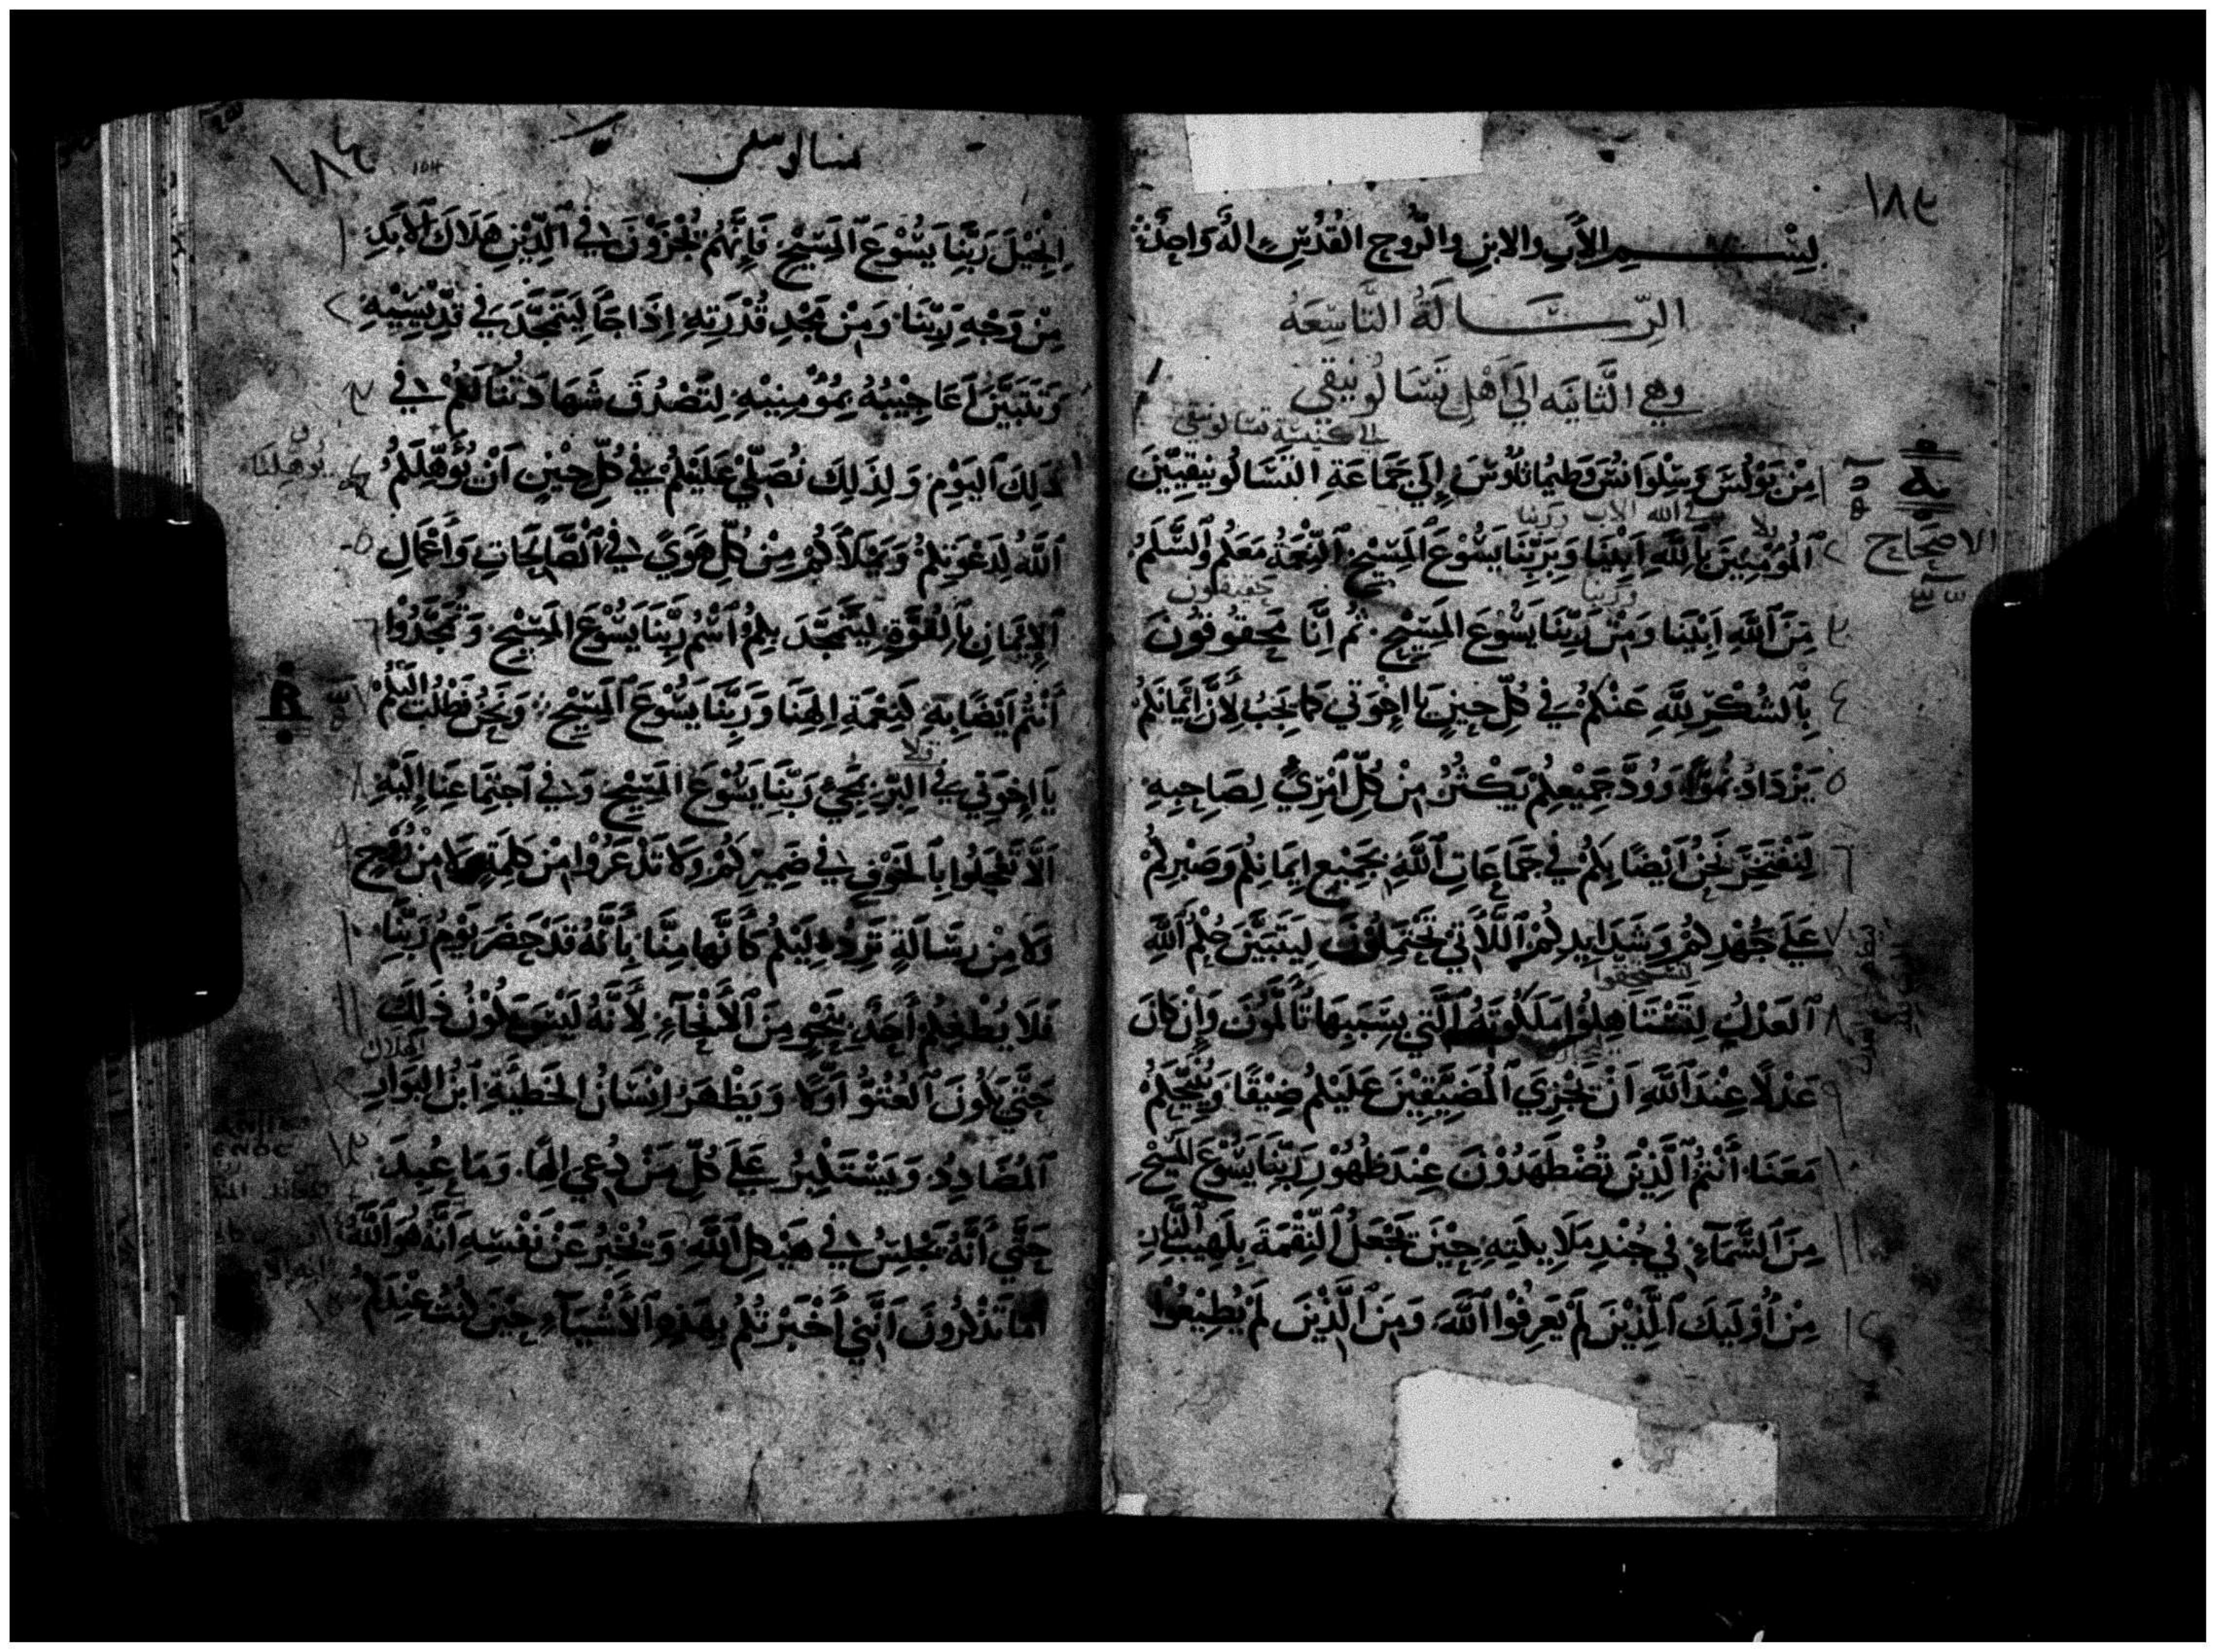 ١٨٣
بِسْمِ الأَبِ والابنِ والرُّوحِ القُدُسِ الَهٌ وَاحِدٌ
الرِّسَالَةُ التَّاسِعَهُ
وهي الثَّانيَه الَي اَهْلِ تَسَالُونيقي
الي كنيسة تسالونيقي
١ مِنْ بَوْلُسَ وَسِلْوَانُسَ وَطيمُاتَاوُسَ إِلَي جَمَاعَةِ التَسَالُونيقيِّينَ
في الله الاب وربنا
الاصحاح
٢ اَلْمُؤمِنِينَ بِاَللَّهِ اَبِيْنَا وَبِرَبِّنَا يَسُوْعَ اَلْمَسِيْحِ اَلنِّعْمَةُ مَعَكُم وَاَلسَّلَمُ
وربنا
حقيقون
٣ مِنَ اَللَّهِ اَبِيْنَا وَمِنْ رَبِّنَا يَسُوْعَ المَسِيْحِ. ثُم اِنَّا مَحقُوقُونَ
٤ بِاْلشُكْرِ لِلَّهِ عَنْكُمْ فِي كُلِّ حِينٍ يَا اِخْوَتِي كَمَا يَجَبُ لِأَنَّ اِيْمَانَكُمْ
٥ يَزْدَادُ نُمُوًّا وَوُدَّ جَمِيْعِكُمْ يَكْثُرُ مِنْ كُلِّ اَمْرِيٍ لِصَاحِبِهِ
٦ لِنَفْتَخِرَ نَحْنُ اَيْضًا بِكُمْ فِي جَمَاعَاتِ اَللَّهِ بِجَمِيْعِ اِيمَانِكُم وَصَبْرِكُمْ
٧ عَلَي جُهْدِكُمْ وَشَدَايِدِكُمْ اَللَّاتِي تَحْتَمِلُوْنَ لِيَتَبَيَّنَ حُكْمُ اَللَّهِ
لتستحقوا
٨ اَلعَدْلُ لِتَسْتَاهِلُوا مَلَكُوتَهُ اَلَّتِي بِسَبَبِهَا تَأْلَمُوْنَ وَاِنْ كَانَ
٩ عَدْلًا عِنْدَ اَللَّهِ اَنْ يَجْزِيَ اَلمُضَيِّقِيْنَ عَلَيْكُمْ ضِيْقًا وَيُنْجِّيَكُمْ
١٠ مَعَنَا اَنْتُمُ اَلَّذِيْنَ تُضْطَهَدُوْنَ عِنْدَ ظُهُوْرِ رَبِّنَا يَسُوْعَ اَلمَسِيْحِ
١١ مِنَ اَلسَّمَآءِ فِي جُنْدِ مَلَايِكَتِهِ حِيْنَ يَجْعَلُ اَلنِّقْمَةَ بِلَهِيْبِ اَلنَّارِ
١٢ مِنْ اُوْلَيِكَ اَلَّذِيْنَ لَمْ يَعَرِفُوْا اَللَّهَ وَمِنَ اَلَّذِيْنَ لَمْ يُطِيْعُوْا
١٨٤
تسالونيقي
١ اِنْجِيْلَ رَبِّنَا يَسُوْعَ اَلمَسِيْحِ فَاِنَّهُمْ يُجْزَوْنَ فِي اَلدِّيْنِ هَلَاكَ اَلأَبَدِ
٢ مِنْ وَجْهِ رَبِّنَا وَمِنْ مَجْدِ قُدْرَتِهِ اِذَا جَآ لِيَتَمَجَّدَ فِي قِدِّيْسِيْهِ
٣ وَتَتَبَيَّنَ اَعَاجِيْبُهُ بِمُؤْمِنِيْهِ لِتَصْدُقَ شَهَادَتُنَا لَكُمْ فِي
٤ ذَلِكَ اَليَوْمِ وَلِذَلِكَ نُصَلِّيْ عَلَيْكُمْ فِي كُلِّ حِيْنٍ اَنْ يُؤَهِّلَكُمْ
٥ اَللَّهُ لِدَعْوَتِكُمْ وَيَمْلَأَكُمْ مِنْ كُلِّ هَوَيً فِي اَلصَّالِحَاتِ وَاَعْمَالِ
٦ اَلاِيْمَانِ بِاَلقُوَّةِ لِيَتَمَجَّدَ بِكُمُ اَسْمُ رَبِّنَا يَسُوْعَ المَسِيْحِ وَتُمَجَّدُوْا
٧ اَنْتُمْ اَيْضًا بِهِ كَنِعْمَةِ اِلَهِنَا وَرَبِّنَا يَسُوْعَ اَلمَسِيْحِ. وَنَحْنُ نَطْلُبُ اِلَيْكُمْ
٨ يَا اِخْوَتِي فِي اَلبِرِّ بِمَجِيِ رَبِّنَا يَسُوْعَ اَلمَسِيْحِ وَفِي اَجتِمَاعِنَا اِلَيْهِ
٩ اَلَّا تَعْجَلُوا بِاَلخَوْفِ فِي ضَمِيْرِكُمْ وَلَا تَذْعَرُوْا مِنْ كَلِمَةٍ وَلَا مِنْ رُوْحٍ
١٠ وَلَا مِنْ رِسَالَةٍ تَرِدُ اِلَيْكُمْ كَأَنَّها مِنَّا بِأَنَّهُ قَدْ حَضَرَ يَوْمُ رَبِّنَا
١١ فَلَا يُطْغِكُمْ اَحَدٌ بِنَحْوٍ مِنَ اَلأَنْحَآءِ لِأَنَّهُ لَيْسَ يَكُوْنُ ذَلِكَ
الهلاك
١٢ حَتَّي يَكُوْنَ اَلعُتُوُّ اَوَّلًا وَيَظْهَرَ اِنْسَانُ الخَطيَّةِ اَبْنُ البَوَارِ
١٣ اَلمُضَادِدُ وَيَسْتَكْبِرُ عَلَي كُلِّ مَنْ دُعِيَ اِلَهًا. وَمَا عُبِدَ
حَتَّي اَنَّهُ يَجْلِسُ فِي هَيْكَلِ اَللَّهِ وَيُخْبِرُ عَنْ نَفْسِهِ اَنَّهُ هُوَ اَللَّهُ
اَمَا تَذْكُرُوْنَ اَنَّنِي اَخْبَرْتُكُمْ بِهَذِهِ اَلأَشْيَآءِ حِيْنَ كُنْتُ عِنْدَكُمْ